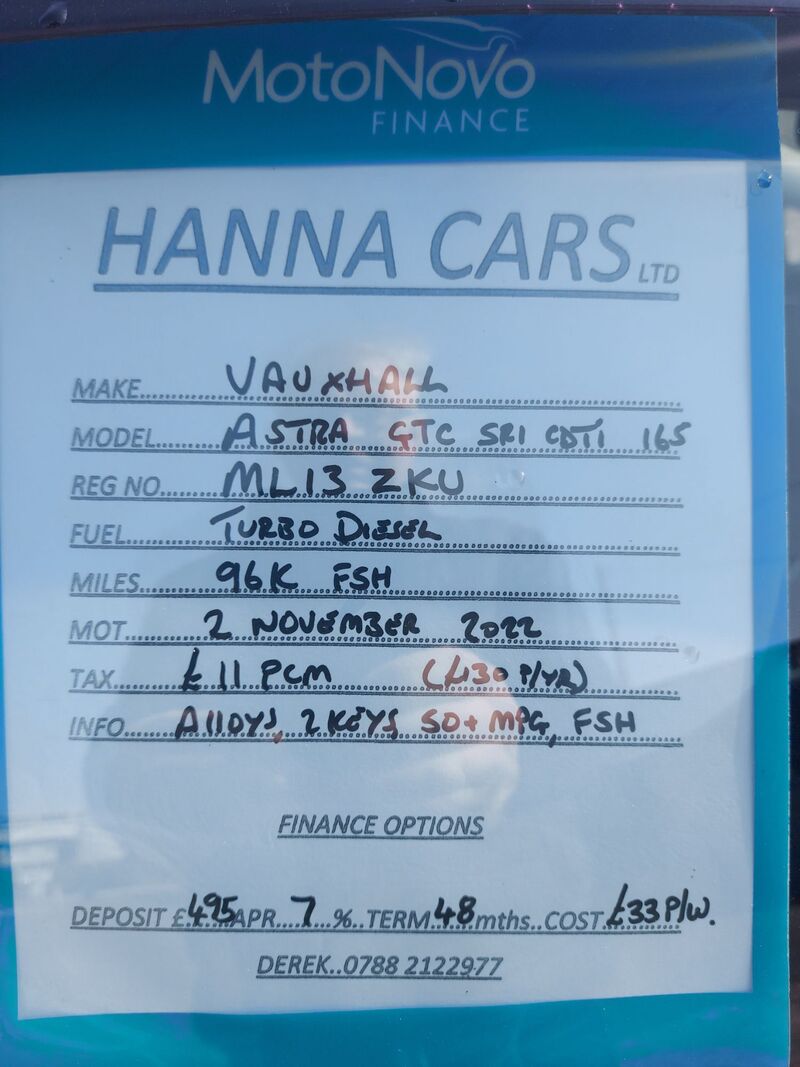 MotoNovo
FINANCE
HANNA CARS LTD
MAKE........ VAUXHALL
MODEL........ ASTRA GTC SRI CDTI 165
REG NO........ ML13 ZKU
FUEL........ TURBO DIESEL
MILES........ 96K FSH
MOT........ 2 NOVEMBER 2022
TAX........ £11 PCM (£130 P/YR)
INFO........ AllOYS, 2 KEYS, 50+ MPG, FSH
FINANCE OPTIONS
DEPOSIT £495 APR....7..%..TERM 48 mths..COST £33 P/W.
DEREK..0788 2122977